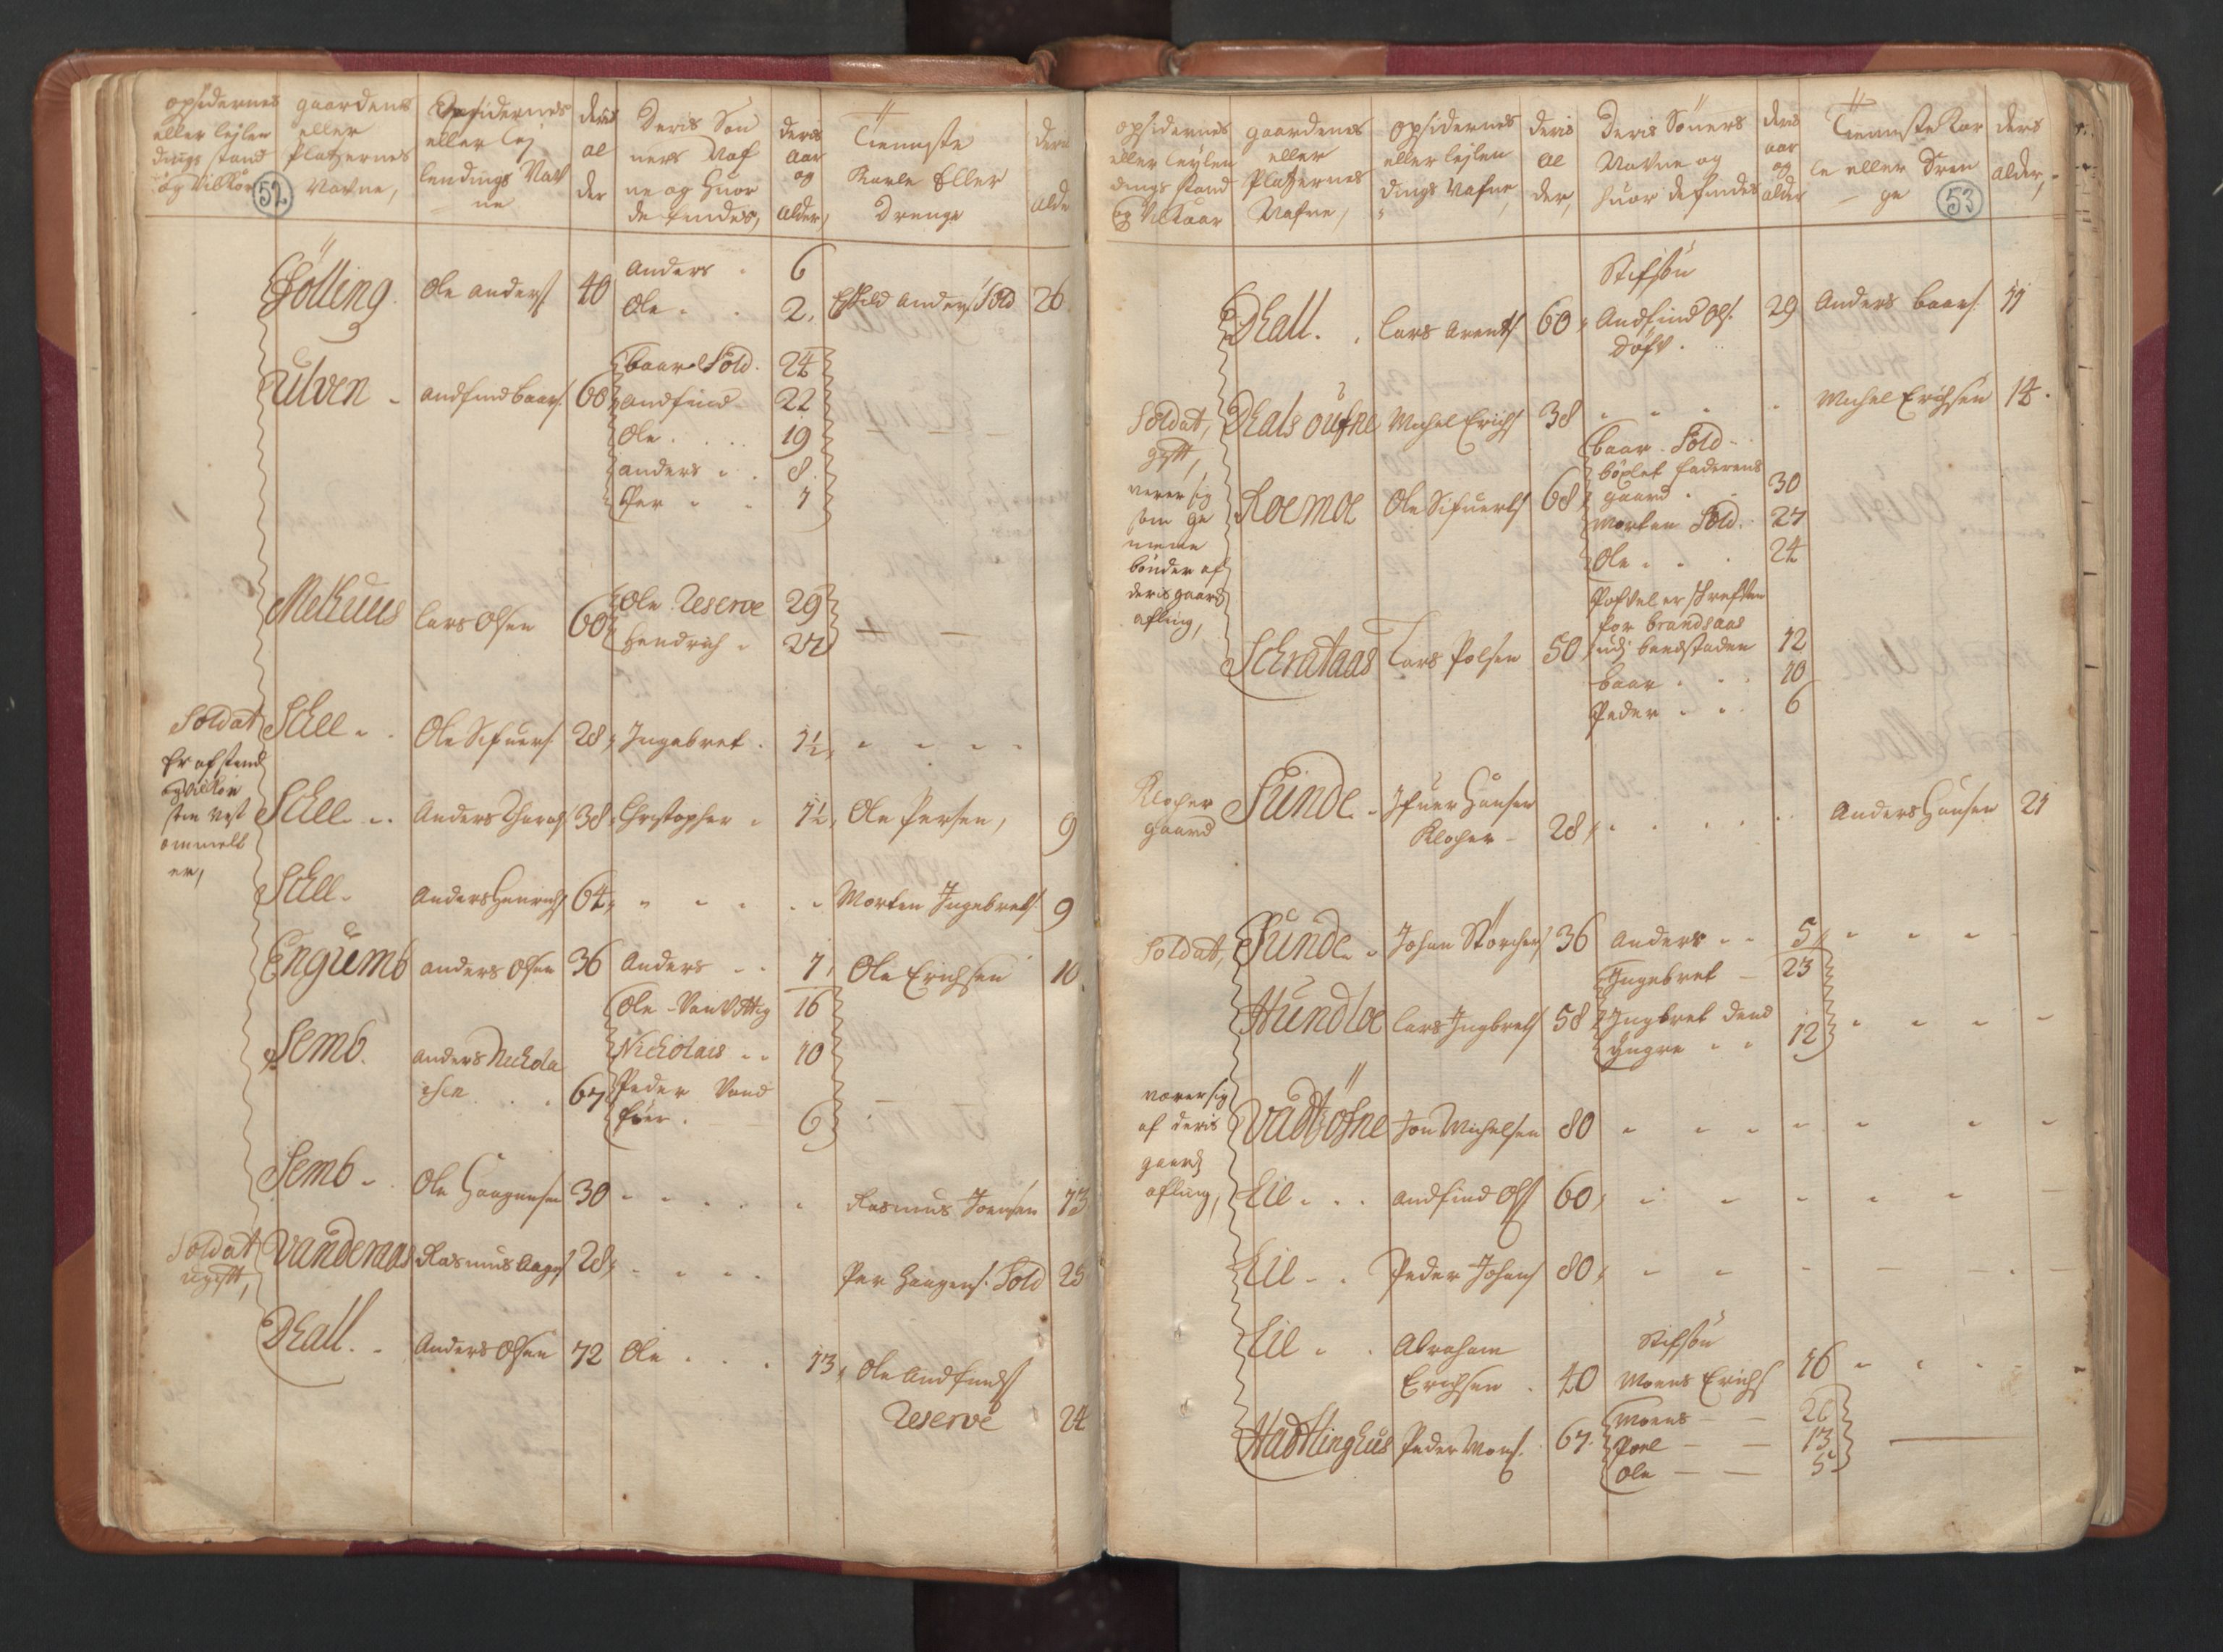 opsidernes eller leylendings stand og Vilkor
gaardens eller Platzernes Nafne,
Opsidernes eller leylendings Nafne
deris alder
Deris Sønners Nafne og Huor de findes,
deris aar og alder,
Tienniste Karle Eller Drenge
deris alder
52
Gölling. Ole Anders 40
Anders 6
Ole 2, Eskild Anders Sold 26
Ulven Andfind Baars. 68
Baar Sold. 24
Andfind 22
Ole 19
Anders 8.
Per 7
Melhuus Lars Olsen 60
Ole Reserve 29
Hendrich 27
Soldat Schee Ole Sifuers. 28, Ingebret 1½,
Er af stand
og Vilkor
som Nest
ommelt
er,
Schee Anders 38, Christopher 1½, Ole Persen, 9
Schee Anders Henrichs 64, Morten Ingebrets. 9
Engumb Anders Olsen 36 Anders 7, Ole Erichsen 10
Semb. Anders Nickola
isen 67
Ole Vanvittig 16
Nickolais 10
Peder Vand
før 6
Semb Ole Haagensen 30 Rasmus Joensen 13
Soldat
ugift,
Vanderaas Rasmus Aages 28, Per Haagens. Sold 25
Dhall. Anders Olsen 72 Ole 13, Ole Andfinds
Reserve 24
opsidernes eller leylendings stand og Vilkaar
gaardenes eller Platzernes Nafne,
opsidernes eller leylendings Nafne,
deris alder,
Deris Sønners Navne og huor de findes
deris aar og alder
Tienniste Karle eller Drenge
ders alder,
53
Dhall. Lars Arents 60,
Stifsøn
Andfind Ols.
døfv.
29 Anders Baars. 11
Soldat,
gift,
Dhals öufne Michel Erichs 38 Michel Erichsen 14.
nerer sig
som ge
mene
bønder af
deris gaards
afling,
Roemoe Ole Sifuerts 68
Baar Sold
böxlet faderens
gaard 30
Morten Sold. 27
Ole 24
Schrataas Lars Polsen 50
Pofvel er skreften
for Brandsaas
udj bendstaden 12
Baar 10
Peder 6
Klocher
gaard
Sunde Ifuer Hansen
Klocher 28, Anders Hansen 21
Soldat, Sunde Johan Störchers 36 Anders 5,
Hundloe Lars Ingbrets 58
Ingebret 23
Ingbret dend
Yngre 12
nærer sig
af deris
gaards
afling,
Vadtöfne Jon Michelsen 80
Eil Andfind Ols 60,
Eil Peder Johans 80,
Eil Abraham
Erichsen 40
Stifsøn
Moens Erichs 16
Hadtlinghus Peder Mons. 67.
Moens 26
Poel 13
Ole 5